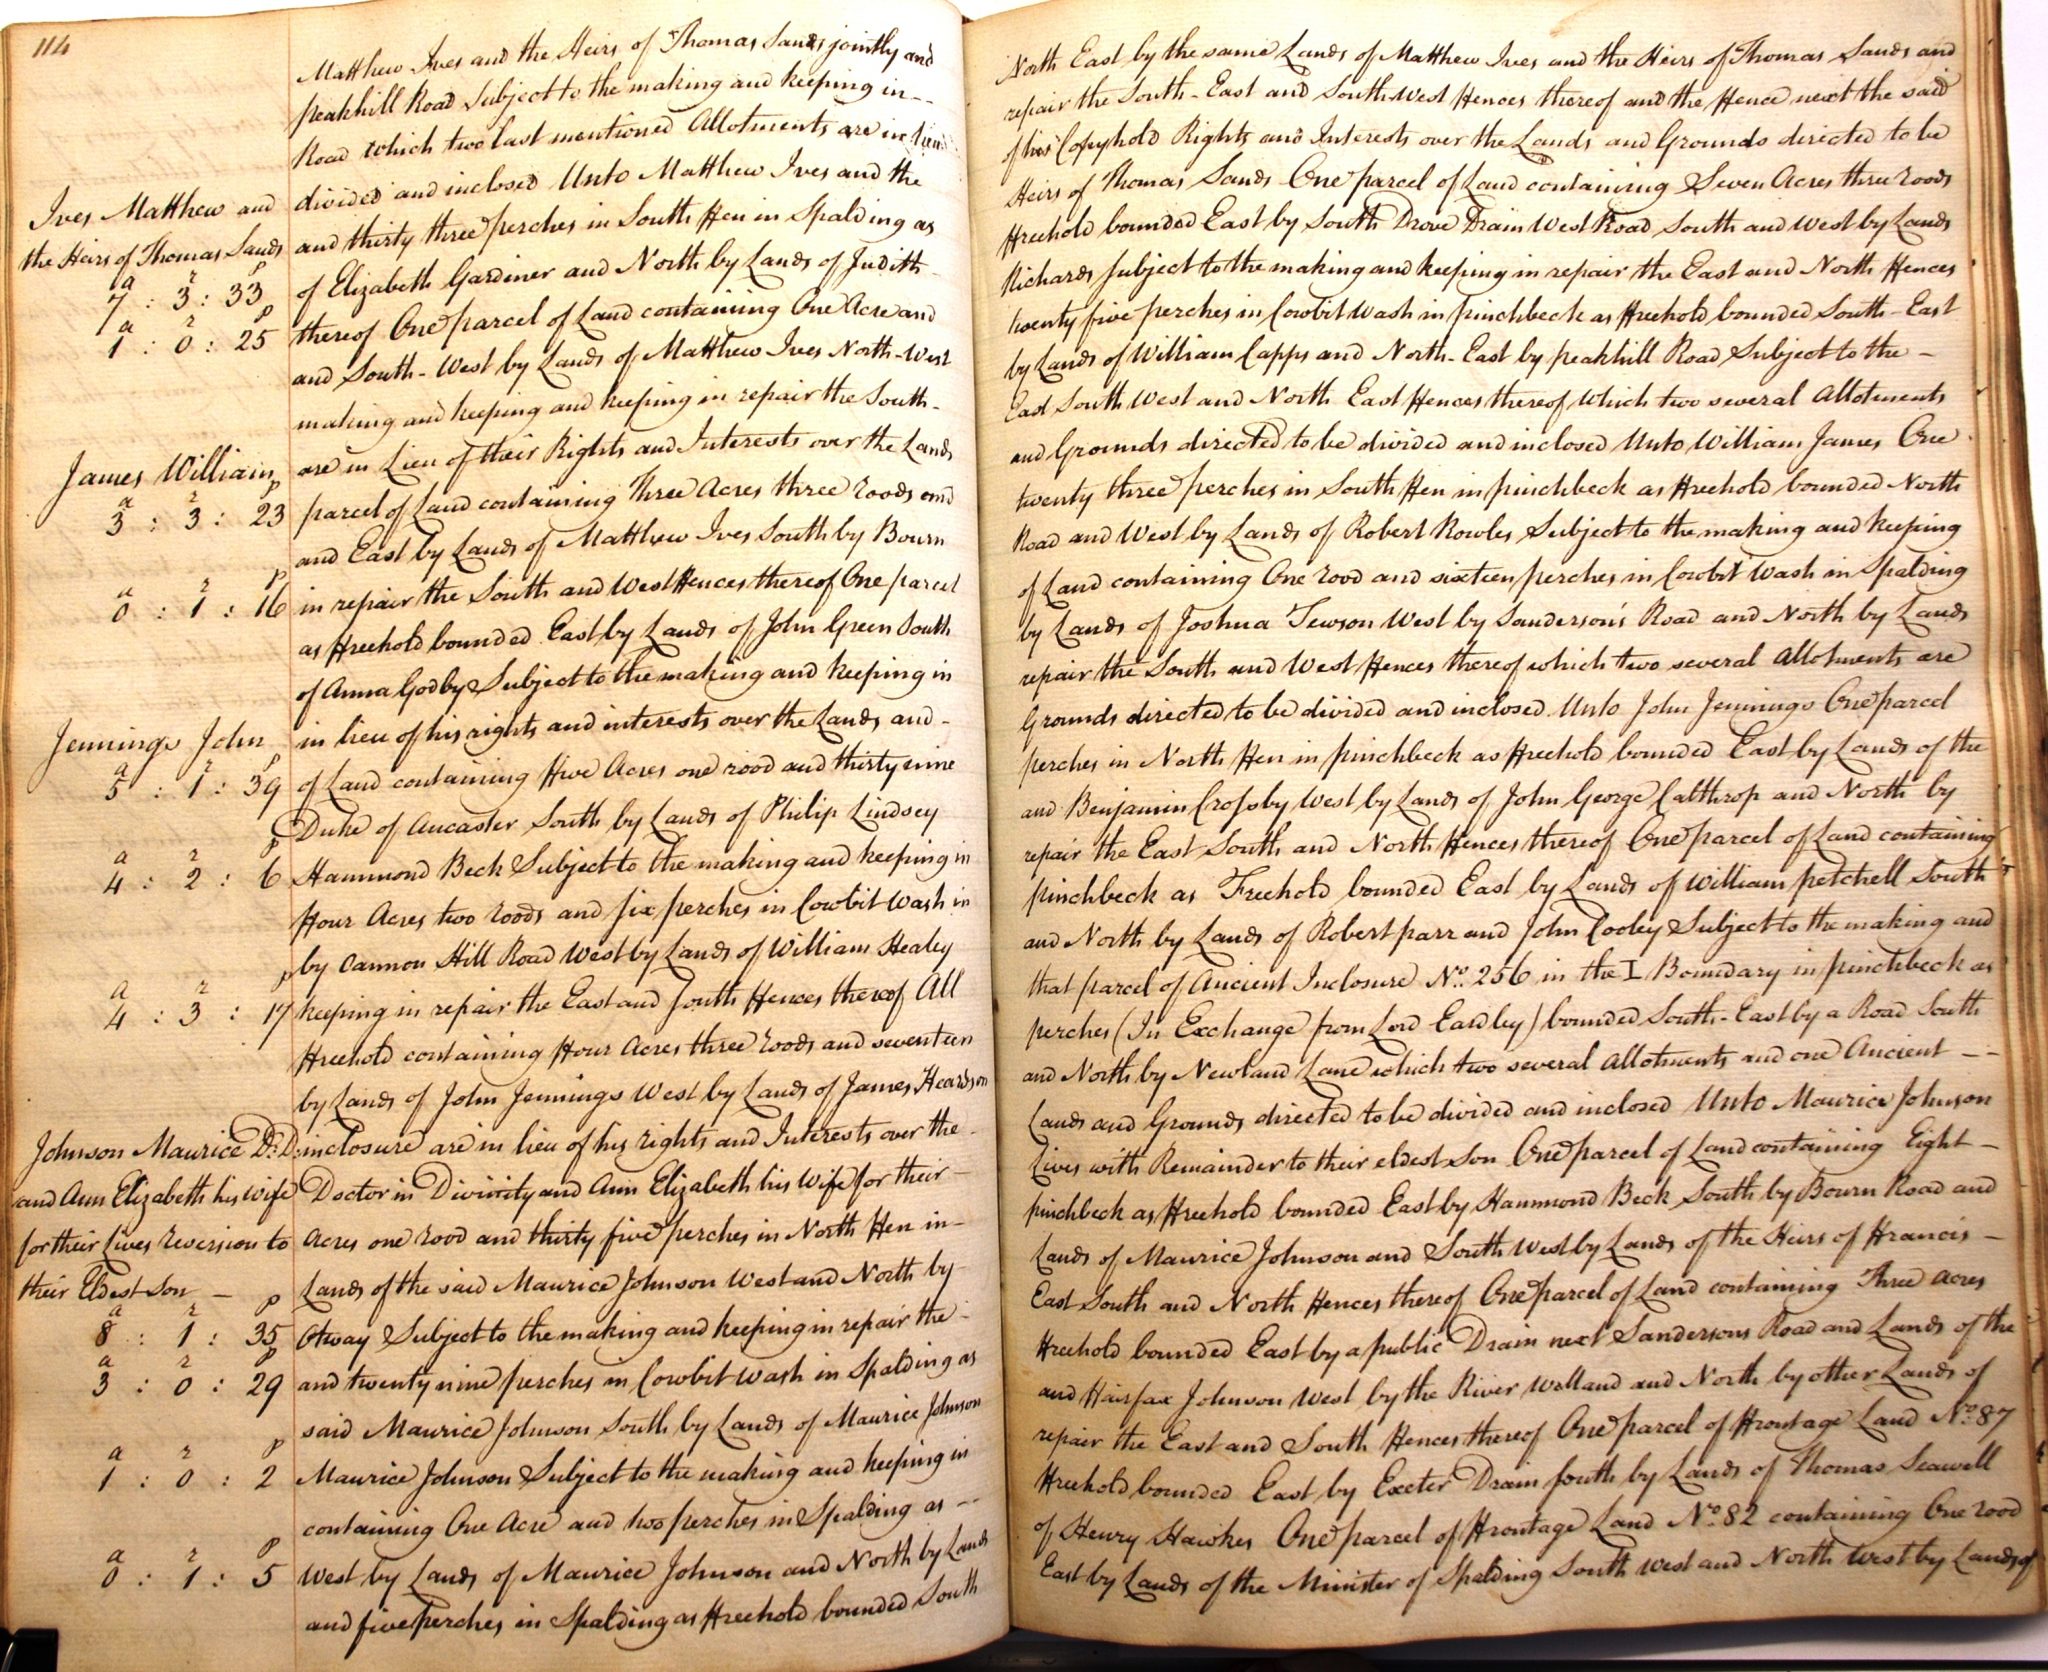 114
Ives Matthew and
the Heirs of Thomas Sands
a r p
7 : 3 : 33
a r p
1 : 0 : 25
James William
a r p
3 : 3 : 23
a r p
0 : 1 : 16
Jennings John
a r p
5 : 1 : 39
a r p
4 : 2 : 6
a r p
4 : 3 : 17
Johnson Maurice D:D:
and Ann Elizabeth his Wife
for their Lives reversion to
their Eldest Son —
a r p
8 : 1 : 35
a r p
3 : 0 : 29
a r p
1 : 0 : 2
a r p
0 : 1 : 5
Matthew Ives and the Heirs of Thomas Sands jointly and
peakhill Road Subject to the making and keeping in --
Road which two last mentioned Allotments are in lieu
divided and inclosed Unto Matthew Ives and the
and thirty three perches in South Fen in Spalding as
of Elizabeth Gardiner and North by Lands of Judith
thereof One parcel of Land containing One Acre and
and South-West by Lands of Matthew Ives North-West
making and keeping and keeping in repair the South-
are in Lieu of their Rights and Interests over the Lands
parcel of Land containing Three Acres three roods and
and East by Lands of Matthew Ives South by Bourn
in repair the South and West Fences thereof One parcel
as Freehold bounded East by Lands of John Green South
of Anna Godby Subject to the making and keeping in
in lieu of his rights and interests over the Lands and -
of Land containing Five Acres one rood and thirty nine
Duke of Ancaster South by Lands of Philip Lindsey
Hammond Beck Subject to the making and keeping in
Four Acres two roods and six perches in Cowbit Wash in
by Cannon Hill Road West by Lands of William Healey
keeping in repair the East and South Fences thereof All
Freehold containing Four Acres three roods and seventeen
by Lands of John Jennings West by Lands of James Heardson
inclosure are in lieu of his rights and Interests over the -
Doctor in Divinity and Ann Elizabeth his Wife for their -
Acres one rood and thirty five perches in North Fen in -
Lands of the said Maurice Johnson West and North by -
Otway Subject to the making and keeping in repair the -
and twenty nine perches in Cowbit Wash in Spalding as
said Maurice Johnson South by Lands of Maurice Johnson
Maurice Johnson Subject to the making and keeping in
containing One Acre and two perches in Spalding as --
West by Lands of Maurice Johnson and North by Lands
and five perches in Spalding as Freehold bounded South
North East by the same Lands of Matthew Ives and the Heirs of Thomas Sands and
repair the South-East and South West Fences thereof and the Fence next the said
of his Copyhold Rights and Interests over the Lands and Grounds directed to be
Heirs of Thomas Sands One parcel of Land containing Seven Acres three roods
Freehold bounded East by South Drove Drain West Road South and West by Lands
Richards Subject to the making and keeping in repair the East and North Fences
twenty five perches in Cowbit Wash in pinchbeck as Freehold bounded South-East
by Lands of William Capps and North-East by peakhill Road Subject to the —
East South West and North East Fences thereof Which two several Allotments
and Grounds directed to be divided and inclosed Unto William James One
twenty three perches in South Fen in pinchbeck as Freehold bounded North
Road and West by Lands of Robert Rowles Subject to the making and keeping
of Land containing One rood and sixteen perches in Cowbit Wash in Spalding
by Lands of Joshua Tewson West by Sanderson's Road and North by Lands
repair the South and West Fences thereof which two several Allotments are
Grounds directed to be divided and inclosed Unto John Jennings One parcel
perches in North Fen in pinchbeck as Freehold bounded East by Lands of the
and Benjamin Crossby West by Lands of John George Calthrop and North by
repair the East South and North Fences thereof One parcel of Land containing
pinchbeck as Freehold bounded East by Lands of William petchell South
and North by Lands of Robert parr and John Cooley Subject to the making and
that parcel of Ancient Inclosure No. 256 in the I Boundary in pinchbeck as
perches (In Exchange from Lord Eardley) bounded South-East by a Road South
and North by Newland Lane which two several Allotments and one Ancient --
Lands and Grounds directed to be divided and inclosed Unto Maurice Johnson
Lives with Remainder to their eldest Son One parcel of Land containing Eight —
pinchbeck as Freehold bounded East by Hammond Beck South by Bourn Road and
Lands of Maurice Johnson and South West by Lands of the Heirs of Francis —
East South and North Fences thereof One parcel of Land containing Three Acres
Freehold bounded East by a public Drain next Sandersons Road and Lands of the
and Fairfax Johnson West by the River Welland and North by other Lands of
repair the East and South Fences thereof One parcel of Frontage Land No. 87
Freehold bounded East by Exeter Drain South by Lands of Thomas Seawell
of Henry Hawkes One parcel of Frontage Land No. 82 containing One rood
East by Lands of the Minister of Spalding South West and North West by Lands of